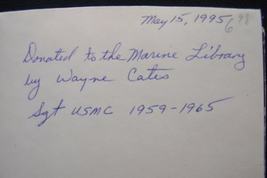 May 15, 1995
6 98
Donated to the Marine Library
by Wayne Cates
Sgt USMC 1959-1965